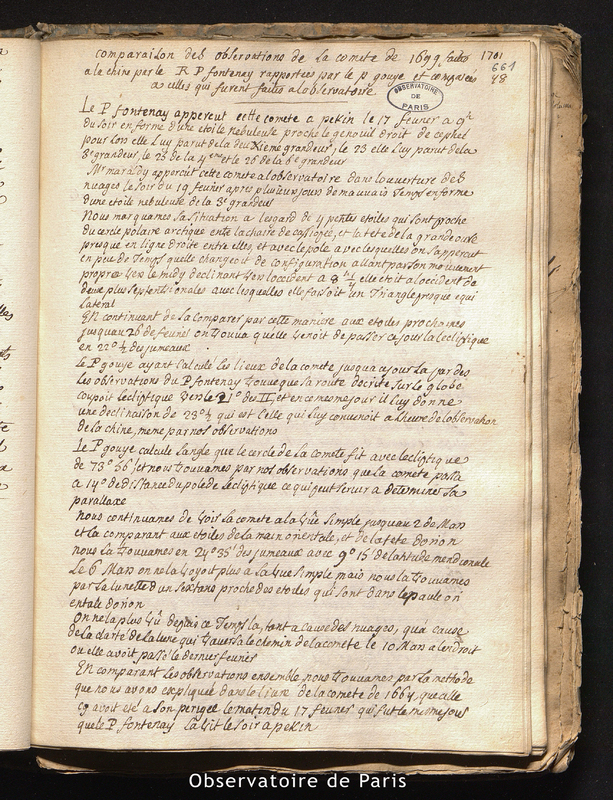 comparaison des observations de la comete de 1699 faites 1701
a la chine par le R P fontenay rapportees par le p gouye et comparées 661
a celles qui furent faites a lobservatoire 48
OBSERVATOIRE DE PARIS
Le P fontenay apperceut cette comete a pekin le 17 feurier a 9h
du soir en forme dune etoile nebuleuse proche le genouil droit de cephée
pour lors elle luy parut de la deuxieme grandeur, le 23 elle luy parut de la
3e grandeur, le 25 de la 4eme et le 26 de la 6e grandeur
Mr maraldy appercut cette comete a lobservatoire dans louverture des
nuages le soir du 19 feurier apres plusieurs jours de mauvais temps en forme
dune etoile nebuleuse de la 3e grandeur
Nous marquames sa situation a legard de 4 petites etoiles qui sont proche
du cercle polaire arctique entre la chaise de cassiopée, et la tete de la grande ourse
presque en ligne droite entre elles, et avec le pole avec lesquelles on sapperceut
en peu de temps quelle changeoit de configuration allant par son mouvement
propre vers le midy declinant vers loccident a 8h 1/4 elle etoit a loccident de
deux plus septentrionales avec lesquelles elle faisoit un triangle presque equi
lateral
En continuant de la comparer par cette maniere aux etoiles prochaines
jusquau 26 de feurier on trouva quelle venoit de passer ce jour la lecliptique
en 22° 1/2 des jumeaux
Le P gouye ayant calculé les lieux de la comete jusqua ce jour la par des
les observations du P fontenay trouve que sa route decrite sur le globe
coupoit lecliptique vers le 21° du II, et en ce mesme jour il luy donne
une declinaison de 23° 1/2 qui est celle qui luy convenoit a lheure de lobservation
de la chine, meme par nos observations
Le P gouye calcule langle que le cercle de la comete fit avec lecliptique
de 73° 56' et nous trouvames par nos observations que la comete passa
a 14° de distance du pole de lecliptique ce qui peut servir a determiner sa
parallaxe
nous continuames de voir la comete a la vüe simple jusquau 2 de Mars
et la comparant aux etoiles de la main orientale, et de la tete dorion
nous la trouvames en 24° 35' des jumeaux avec 9° 15' de latitude meridionale
Le 6 Mars on ne la voyoit plus a la vue simple mais nous la trouvames
par la lunette dun sextans proche des etoiles qui sont dans lepaule ori
entale dorion
On ne la plus vû depuis ce temps la, tant a cause des nuages, qua cause
de la clarté de la lune qui traversa le chemin de la comete le 10 Mars a lendroit
ou elle avoit passé le dernier feurier
En comparant les observations ensemble nous trouvames par la methode
que nous avons expliquée dans le livre de la comete de 1664 que celle
cy avoit eté a son perigée le matin du 17 feurier qui fut le mesme jour
que le P fontenay la vit le soir a pekin
Observatoire de Paris